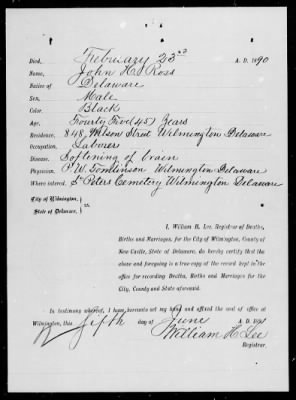 Died, February 23rd A. D. 1890
Name, John H. Ross
Native of Delaware
Sex, Male
Color, Black
Age, Fourty Five (45) Years
Residence, 848, Wilson Street Wilmington Delaware
Occupation, Laborer
Disease, Softening of brain
Physician, P. W. Tomlinson Wilmington Delaware
Where interred, St Peters Cemetery Wilmington Delaware
City of Wilmington,
State of Delaware, } ss.
I, William H. Lee, Registrar of Deaths,
Births and Marriages, for the City of Wilmington, County of
New Castle, State of Delaware, do hereby certify that the
above and foregoing is a true copy of the record kept in the
office for recording Deaths, Births and Marriages for the
City, County and State aforesaid.
In testimony whereof, I have hereunto set my hand and affixed the seal of office at
Wilmington, this fifth day of June A. D. 1891
William H. Lee
Registrar.